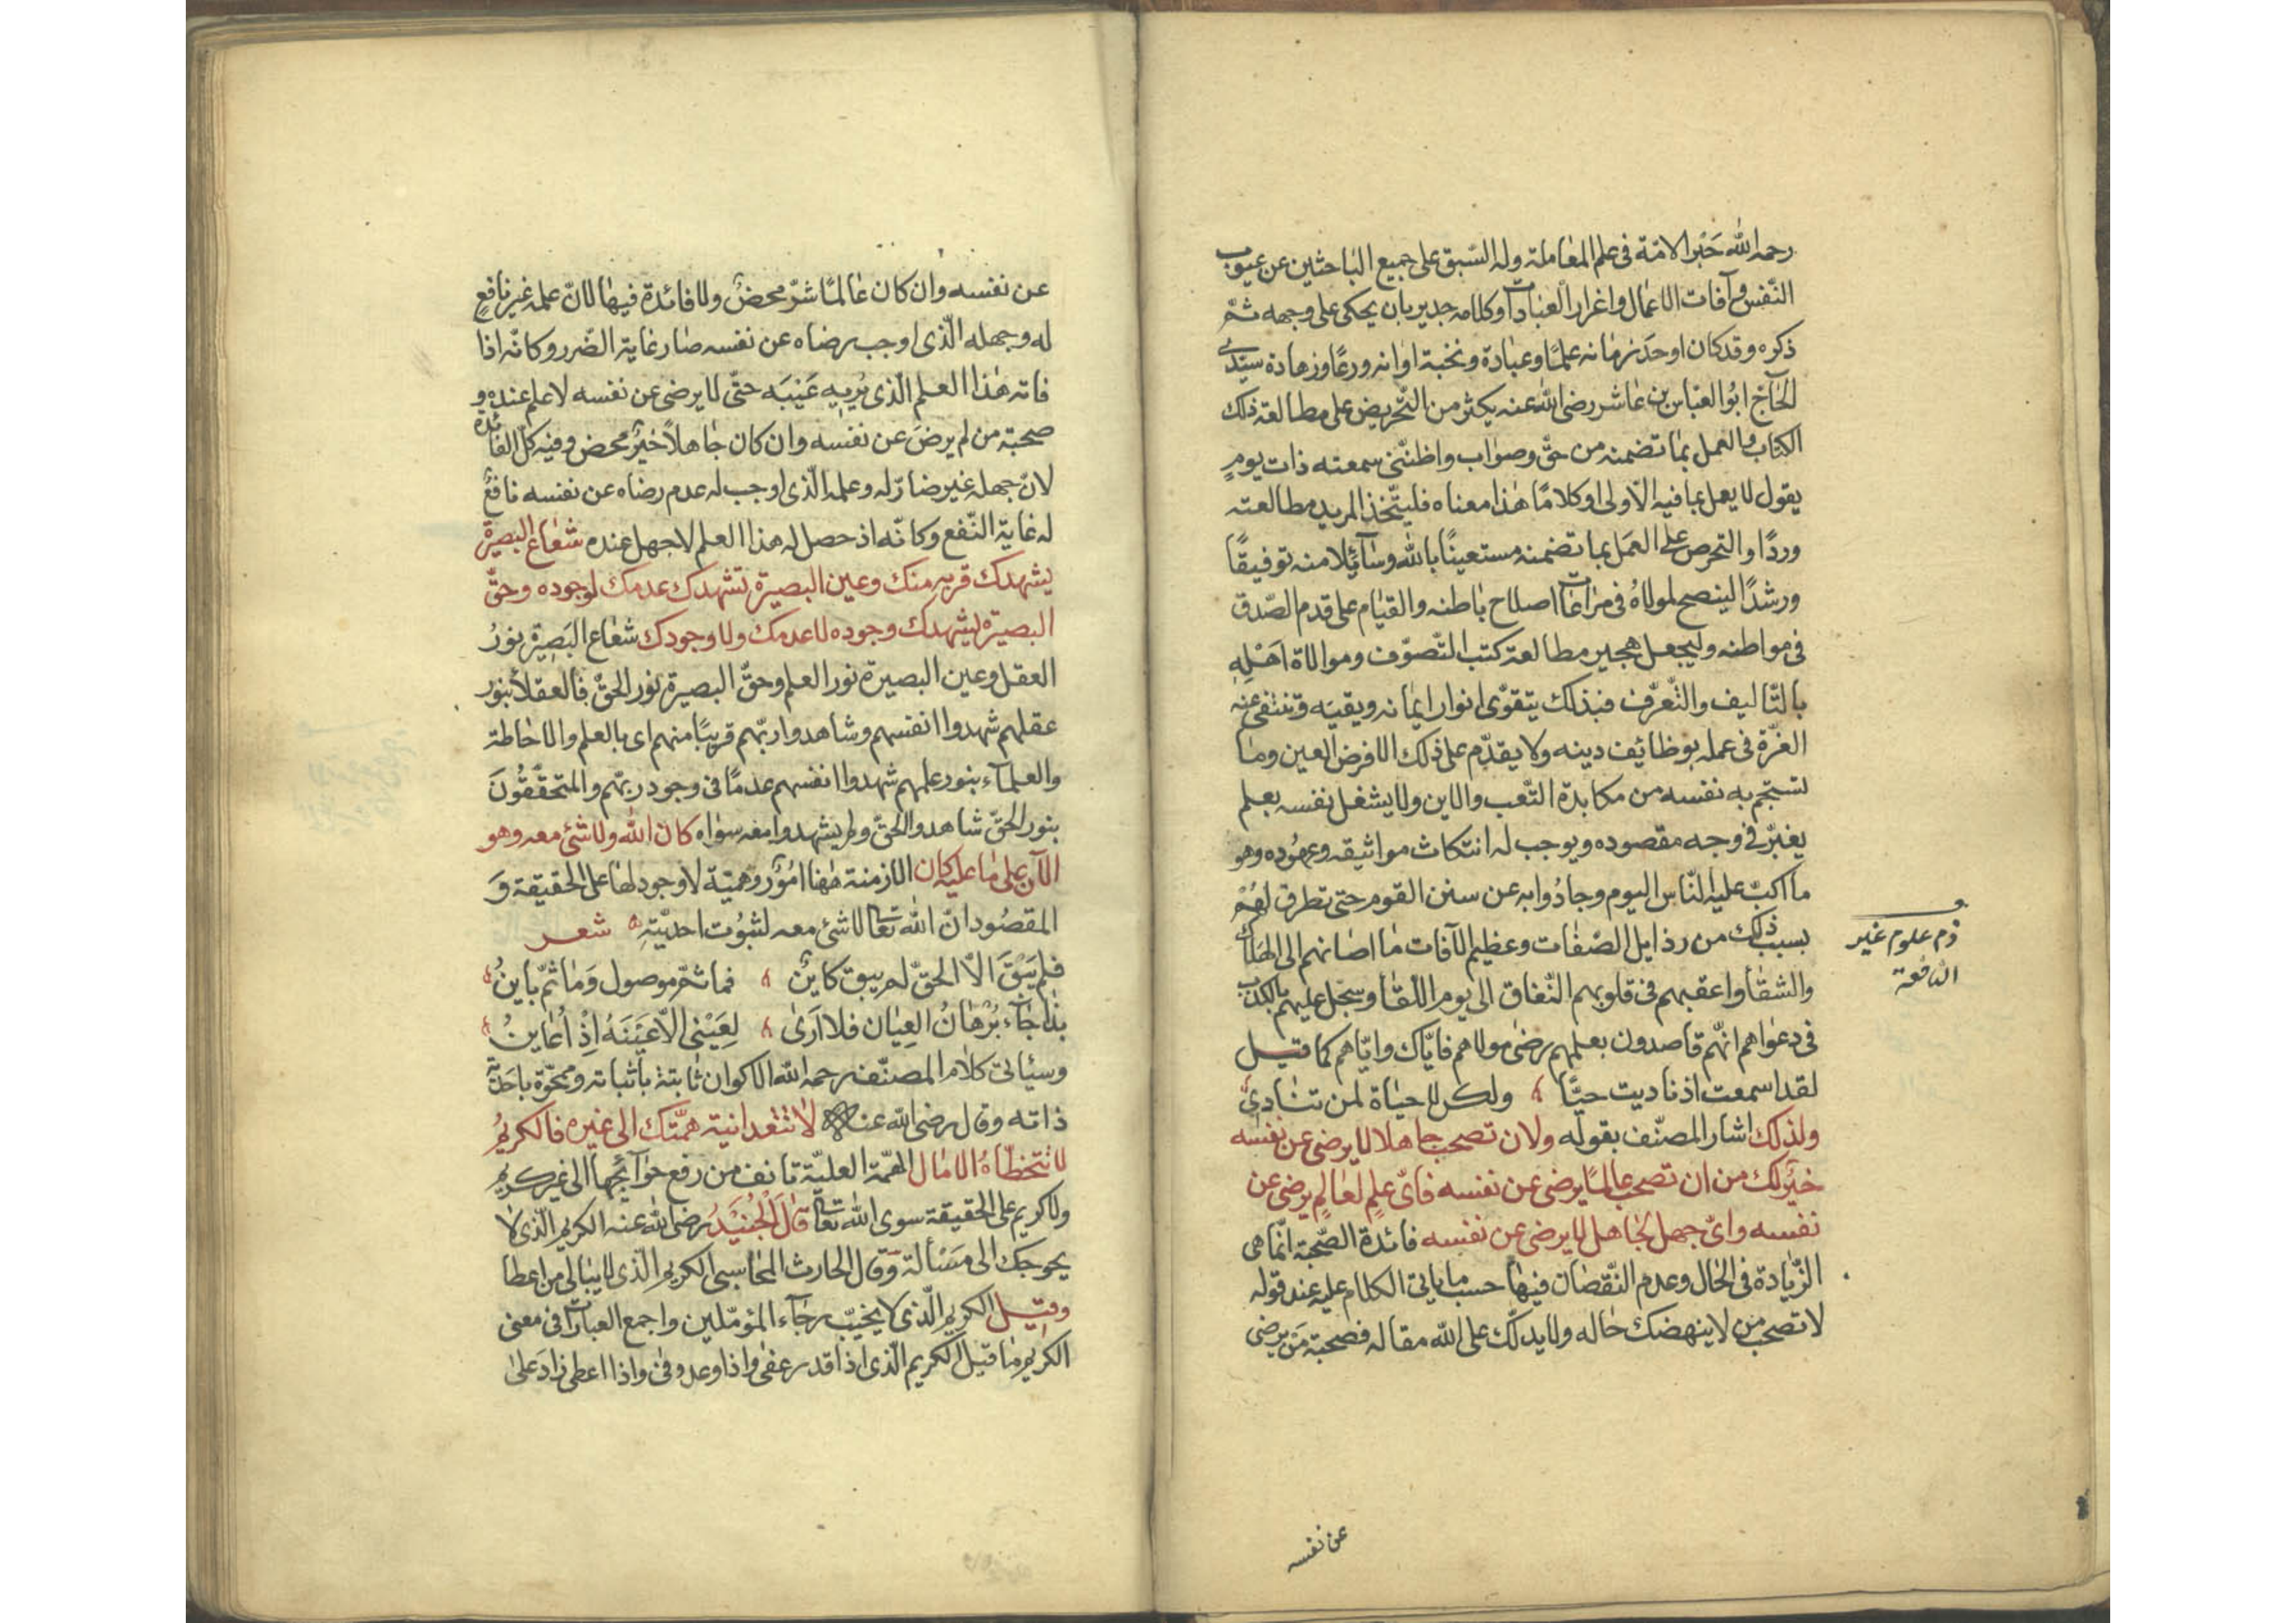 رحمه الله حَبْر الامّة فى علم المعاملة وله السّبق على جميع الباحثين عن عيوب
النّفس وآفات الاعمال واغرار العبادات وكلامه جدير بان يحكى على وجهه ثمّ
ذكره وقد كان اوحَد زمانه علمًا وعبادة ونخبة اوانه ورعًا وزهادة سيّدى
الحآجّ ابوُ العبّاس بن عاشر رضى الله عنه يكثر من التّحريض على مطالعة ذلك
الكتاب والعمل بما تضمنه من حقّ وصواب واظنّنى سمعته ذات يومٍ
يقول لا يعمل بما فيه الّا ولى اوكلامًا هذا معناه فليتّخذ المريد مطالعته
وردًا والتحرص على العمَل بما تضمنه مستعينًا بالله وسآئلا منه توفيقًا
ورشدًا لينصح لمولاهُ فى مراعات اصلاح باطنه والقيام على قدم الصّدق
فى مواطنه وليجعل هجير مطالعة كتب التّصوّف وموالاة اهَْلِهِ
بالتّاليف والتّعرّف فبذلك يتقوّى انوار ايمانه ويقينه وتنتفى عنه
الغرّة فى عمله بوظائف دينه ولا يقدّم على ذلك الا فرض العين وما
تستجم به نفسه من مكابدة التّعب والاين ولا يشغل نفسه بعلم
يغبّر فى وجه مقصوده ويوجب له انتكاث مواثيقه وعهُوده وهو
ما اكبّ عليه النّاس اليوم وحادُوا به عن سنن القوم حتى تطرق لهُمْ
بسبب ذلك من رذايل الصّفات وعظيم الآفات ما اصَانهم الى الهَلاك
والشقآ واعقبهم فى قلوبهم النّفاق الى يوم اللّقآ وسجّل عليهم بالكذب
فى دعواهم انّهم قاصدون بعلمهم رضىٰ مولاهم فايّاك وايّاهم كما قيل
لقد اسمعت اذ ناديت حيّا ولكن لا حياة لمن تنادىُ
ولذلك اشار المصنّف بقوله ولان تصحب جاهلا لا يرضى عن نفسه
خيرٌ لك من ان تصحب عالمًا يرضى عن نفسه فاىّ علمٍ لعالمٍ يرضى عن
نفسه واىّ جهل لجاهل لا يرضى عن نفسه فائدة الصّحبة انّما هى
الزّيادة فى الحال وعدم النّقصان فيها حسب ما ياتى الكلام عليه عند قوله
لا تصحب من لا ينهضك حاله ولا يدلّك على الله مقاله فصحبة مَن يرضى
ذم علوم غير
النافعة
عن نفسه
عن نفسه وان كان عالمًا شرّ محضٌ ولا فائدة فيها لانّ علمه غير نافعٍ
له وجهله الّذى اوجب رضاه عن نفسه صار غاية الضّرر وكانّه اذا
فاته هذا العلم الّذى يُريه عَيْبَه حتّى لا يرضى عن نفسه لا علم عنده و
صحبة من لم يرضَ عن نفسه وان كان جاهلاً خيرٌ محض وفيه كلّ الفائدة
لانّ جهله غير ضارّ له وعلمه الّذى اوجب له عدم رضاه عن نفسه نافعٌ
له غاية النّفع وكانّه اذ حصل له هذا العلم لا جهل عنده شعاع البصيرة
يشهدك قربه منك وعين البصيرة تشهدك عدمك لوجوده وحقّ
البصيرة يشهدك وجوده لا عدمك ولا وجودك شعاع البَصيرة نورُ
العقل وعين البصيرة نور العلم وحقّ البصيرة نور الحقّ فالعقلاءُ بنور
عقلهم شهدوا انفسهم وشاهدوا ربّهم قريبًا منهم اى بالعلم والاحاطة
والعلمآء بنور علمهم شهدوا انفسهم عدمًا فى وجود ربّهم والمتحقّقُونَ
بنور الحقّ شاهدوا الحقّ ولم يشهدوا معه سواه كان الله ولا شئ معه وهو
الآن على ما عليه كان الازمنة ههنا امُوُرٌ وهميّة لا وجود لها على الحقيقة وَ
المقصُود انّ الله تعالى لا شئ معه لثبُوت احديّتهِ شعر
فلم يَبْقَ الّا الحقّ لم يبق كاينٌ فما ثمّ موصول وَما ثمّ باينُ
بذا جآء بُرْهانُ العِيان فلا اَرىٰ لِعَيْنى الّا عَيْنَهُ اِذْ اُعاينُ
وسيأتى كلام المصنّف رحمه الله الاكوان ثابتة باثباته وممحّوة باحَديّة
ذاته وقال رضى الله عنه لا تتعدّ انية همّتك الى غيره فالكريمُ
لا تتخطّاهُ الامٰال الهمّة العليّة تانف من رفع حوآئجها الى غير كريم
ولا كريم على الحقيقة سوى الله تعالى قالَ الْجُنَيْدُ رضى الله عنه الكريم الّذى لا
يحوجك الى مسْألة وقال الحارث المحاسبى الكريم الّذى لا يبالى من اعطا
وقيل الكريم الّذى لا يخيّب رجآء المؤمّلين واجمع العبارات فى معنى
الكريم ما قيل الكريم الّذى اذا قدر عفىٰ واذا وعد وفىٰ واذا اعطى زادَ علىٰ